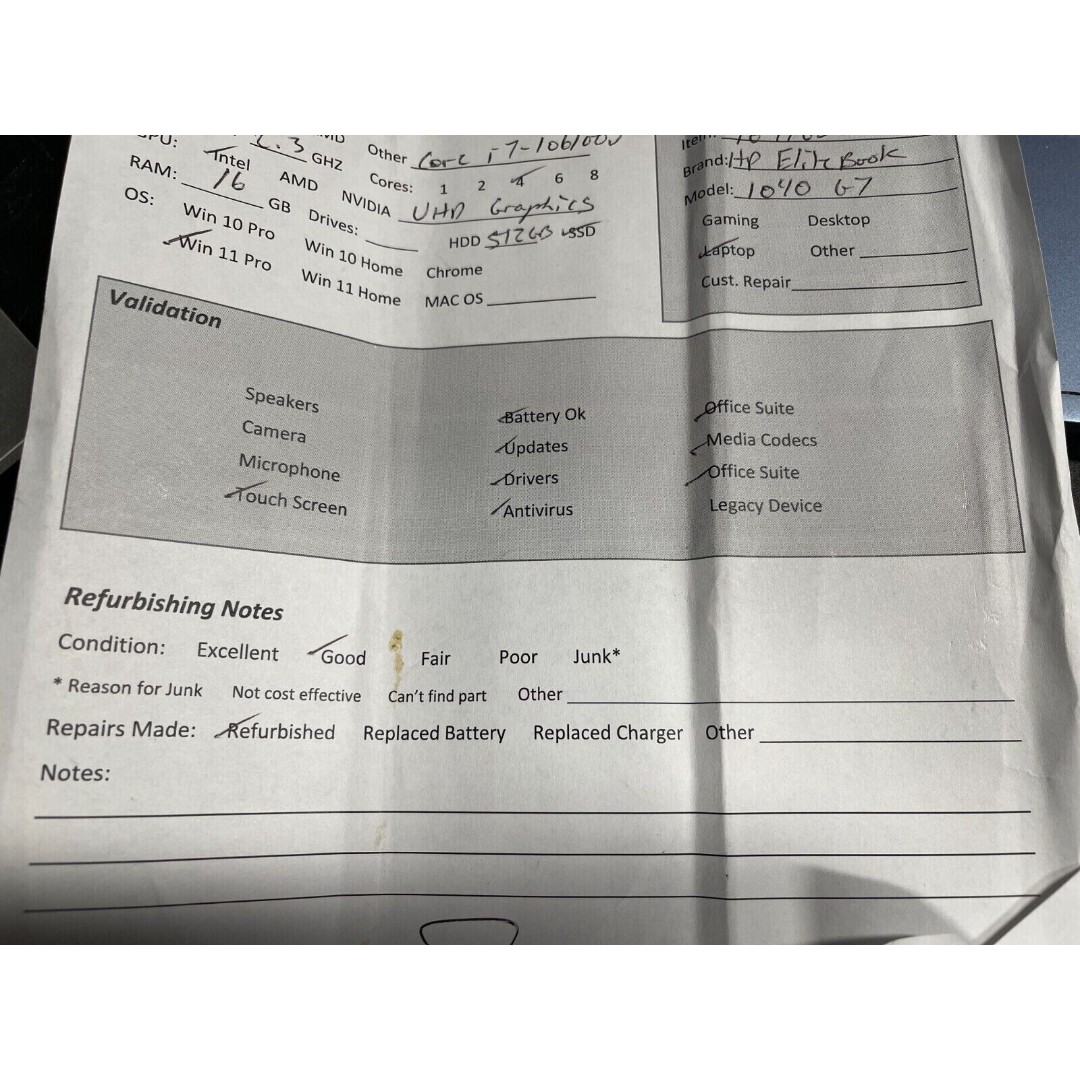 GHZ Other Core i7-
Item
GPU: Intel AMD NVIDIA Cores: 1 2 4 6 8
Brand: HP EliteBook
RAM: 16 GB Drives: UHD Graphics
Model: 1040 G7
HDD 512GB SSD
OS: Win 10 Pro Win 10 Home Chrome
Gaming Desktop
Win 11 Pro Win 11 Home MAC OS
Laptop Other
Cust. Repair
Validation
Speakers Battery Ok Office Suite
Camera Updates Media Codecs
Microphone Drivers Office Suite
Touch Screen Antivirus Legacy Device
Refurbishing Notes
Condition: Excellent Good Fair Poor Junk*
* Reason for Junk Not cost effective Can't find part Other
Repairs Made: Refurbished Replaced Battery Replaced Charger Other
Notes: